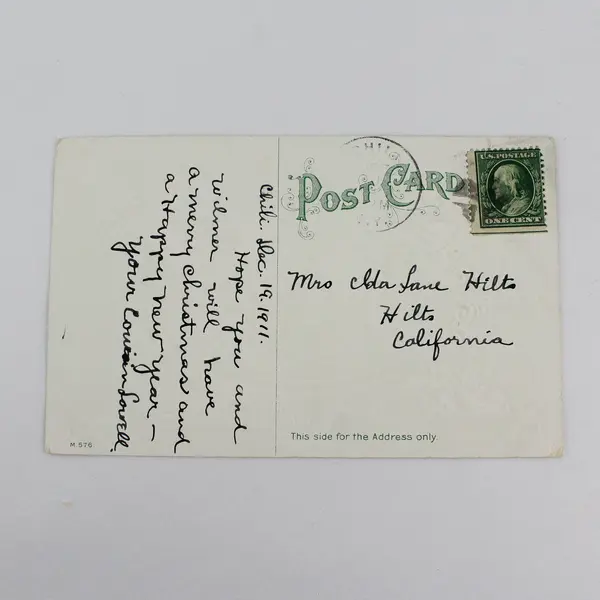 Chili. Dec. 19. 1911.
Hope you and
Wilmer will have
a merry Christmas and
a Happy New Year –
Your Cousin Lowell.
M. 576.
POST CARD
U.S. POSTAGE
ONE CENT
Mrs Ida Jane Hilts
Hilts
California
This side for the Address only.